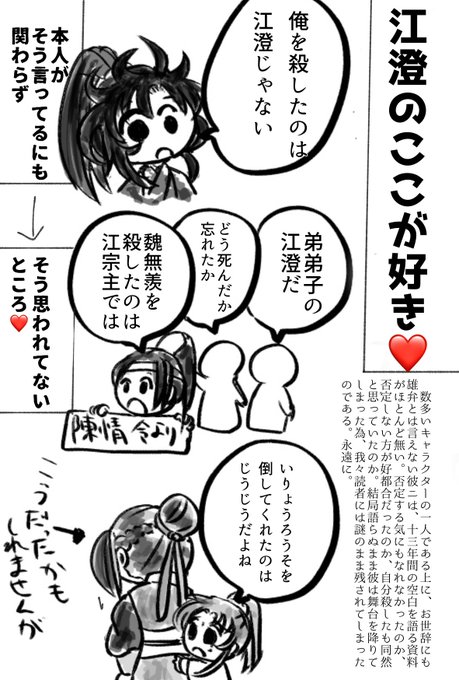 江澄のここが好き❤️
数多いキャラクターの一人である上に、お世辞にも
雄弁とは言えない彼ニは、十三年間の空白を語る資料
がほとんど無い。否定する気にもなれなかったのか、
否定しない方が好都合だったのか、自分殺したも同然
と思っていたのか。結局語らぬまま彼は舞台を降りて
しまった為、我々読者には謎のまま残されてしまった
のである。永遠に。
俺を殺したのは
江澄じゃない
本人が
そう言ってるにも
関わらず
弟弟子の
江澄だ
どう死んだか
忘れたか
魏無羨を
殺したのは
江宗主では
陳情令より
そう思われてない
ところ❤️
いりょうろうそを
倒してくれたのは
じうじうだよね
こうだったかも
しれませんが